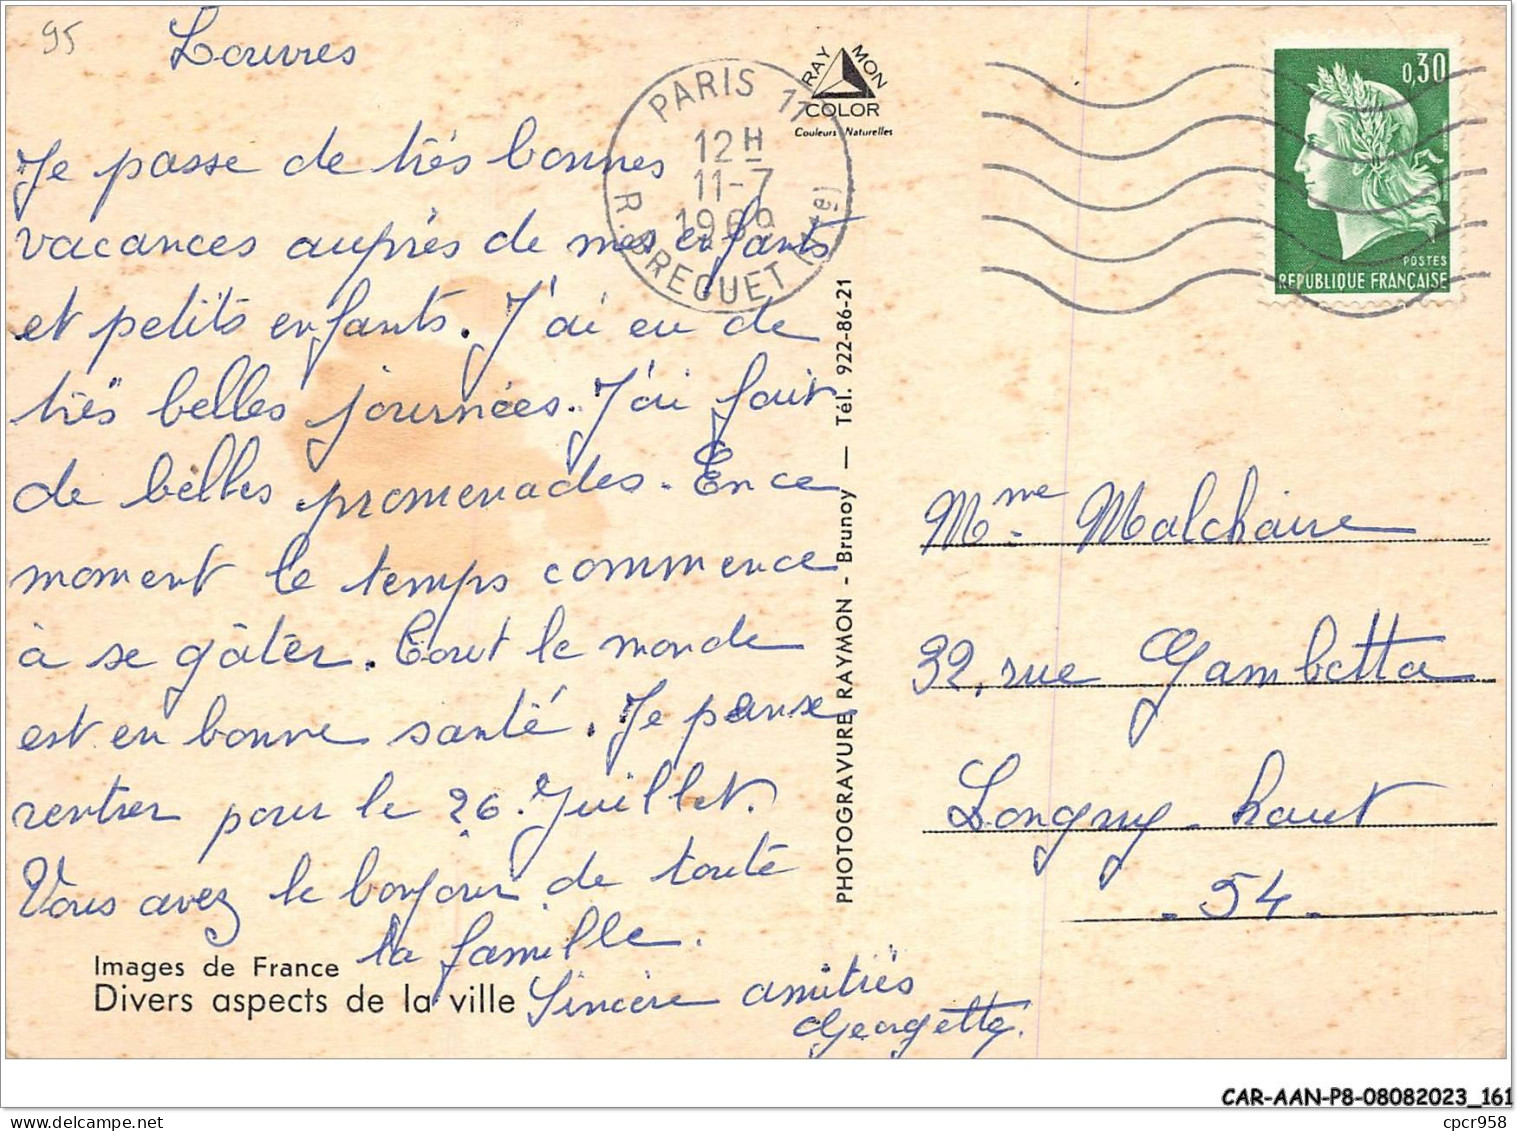 95
Louvres
Je passe de très bonnes
vacances auprès de mes enfants
et petits enfants. J'ai eu de
très belles journées. J'ai fait
de belles promenades. En ce
moment le temps commence
à se gâter. Tout le monde
est en bonne santé. Je pense
rentrer pour le 26 Juillet.
Vous avez le bonjour de toute
la famille.
Sincère amitiés
Georgette.
Images de France
Divers aspects de la ville
PARIS 17
12H
11-7
1969
R. BREGUET (11e)
RAYMON
COLOR
Couleurs Naturelles
PHOTOGRAVURE RAYMON - Brunoy — Tél. 922-86-21
0,30
POSTES
REPUBLIQUE FRANÇAISE
Mme Malchaire
32, rue Gambetta
Longwy-haut
- 54 -
CAR-AAN-P8-08082023_161
cpcr958